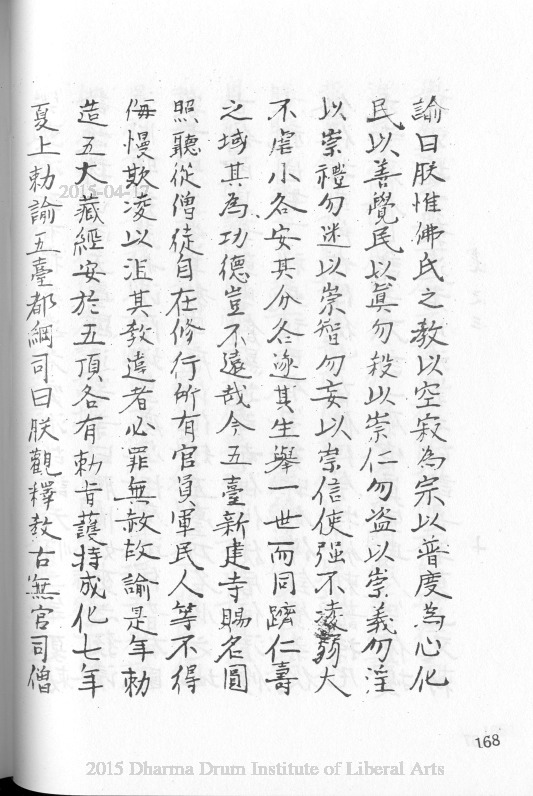 諭曰朕惟佛氏之教以空寂為宗以普度為心化
民以善覺民以真勿殺以崇仁勿盗以崇義勿淫
以崇禮勿迷以崇智勿妄以崇信使强不凌弱大
不虐小各安其分各遂其生舉一世而同躋仁壽
之域其為功德豈不遠哉今五臺新建寺賜名圓
照聽從僧徒自在修行所有官員軍民人等不得
侮慢欺凌以沮其教違者必罪無赦故諭是年勅
造五大藏經安於五頂各有勅旨護持成化七年
夏上勅諭五臺都綱司曰朕觀釋教古無官司僧
168
2015-04-17
2015 Dharma Drum Institute of Liberal Arts